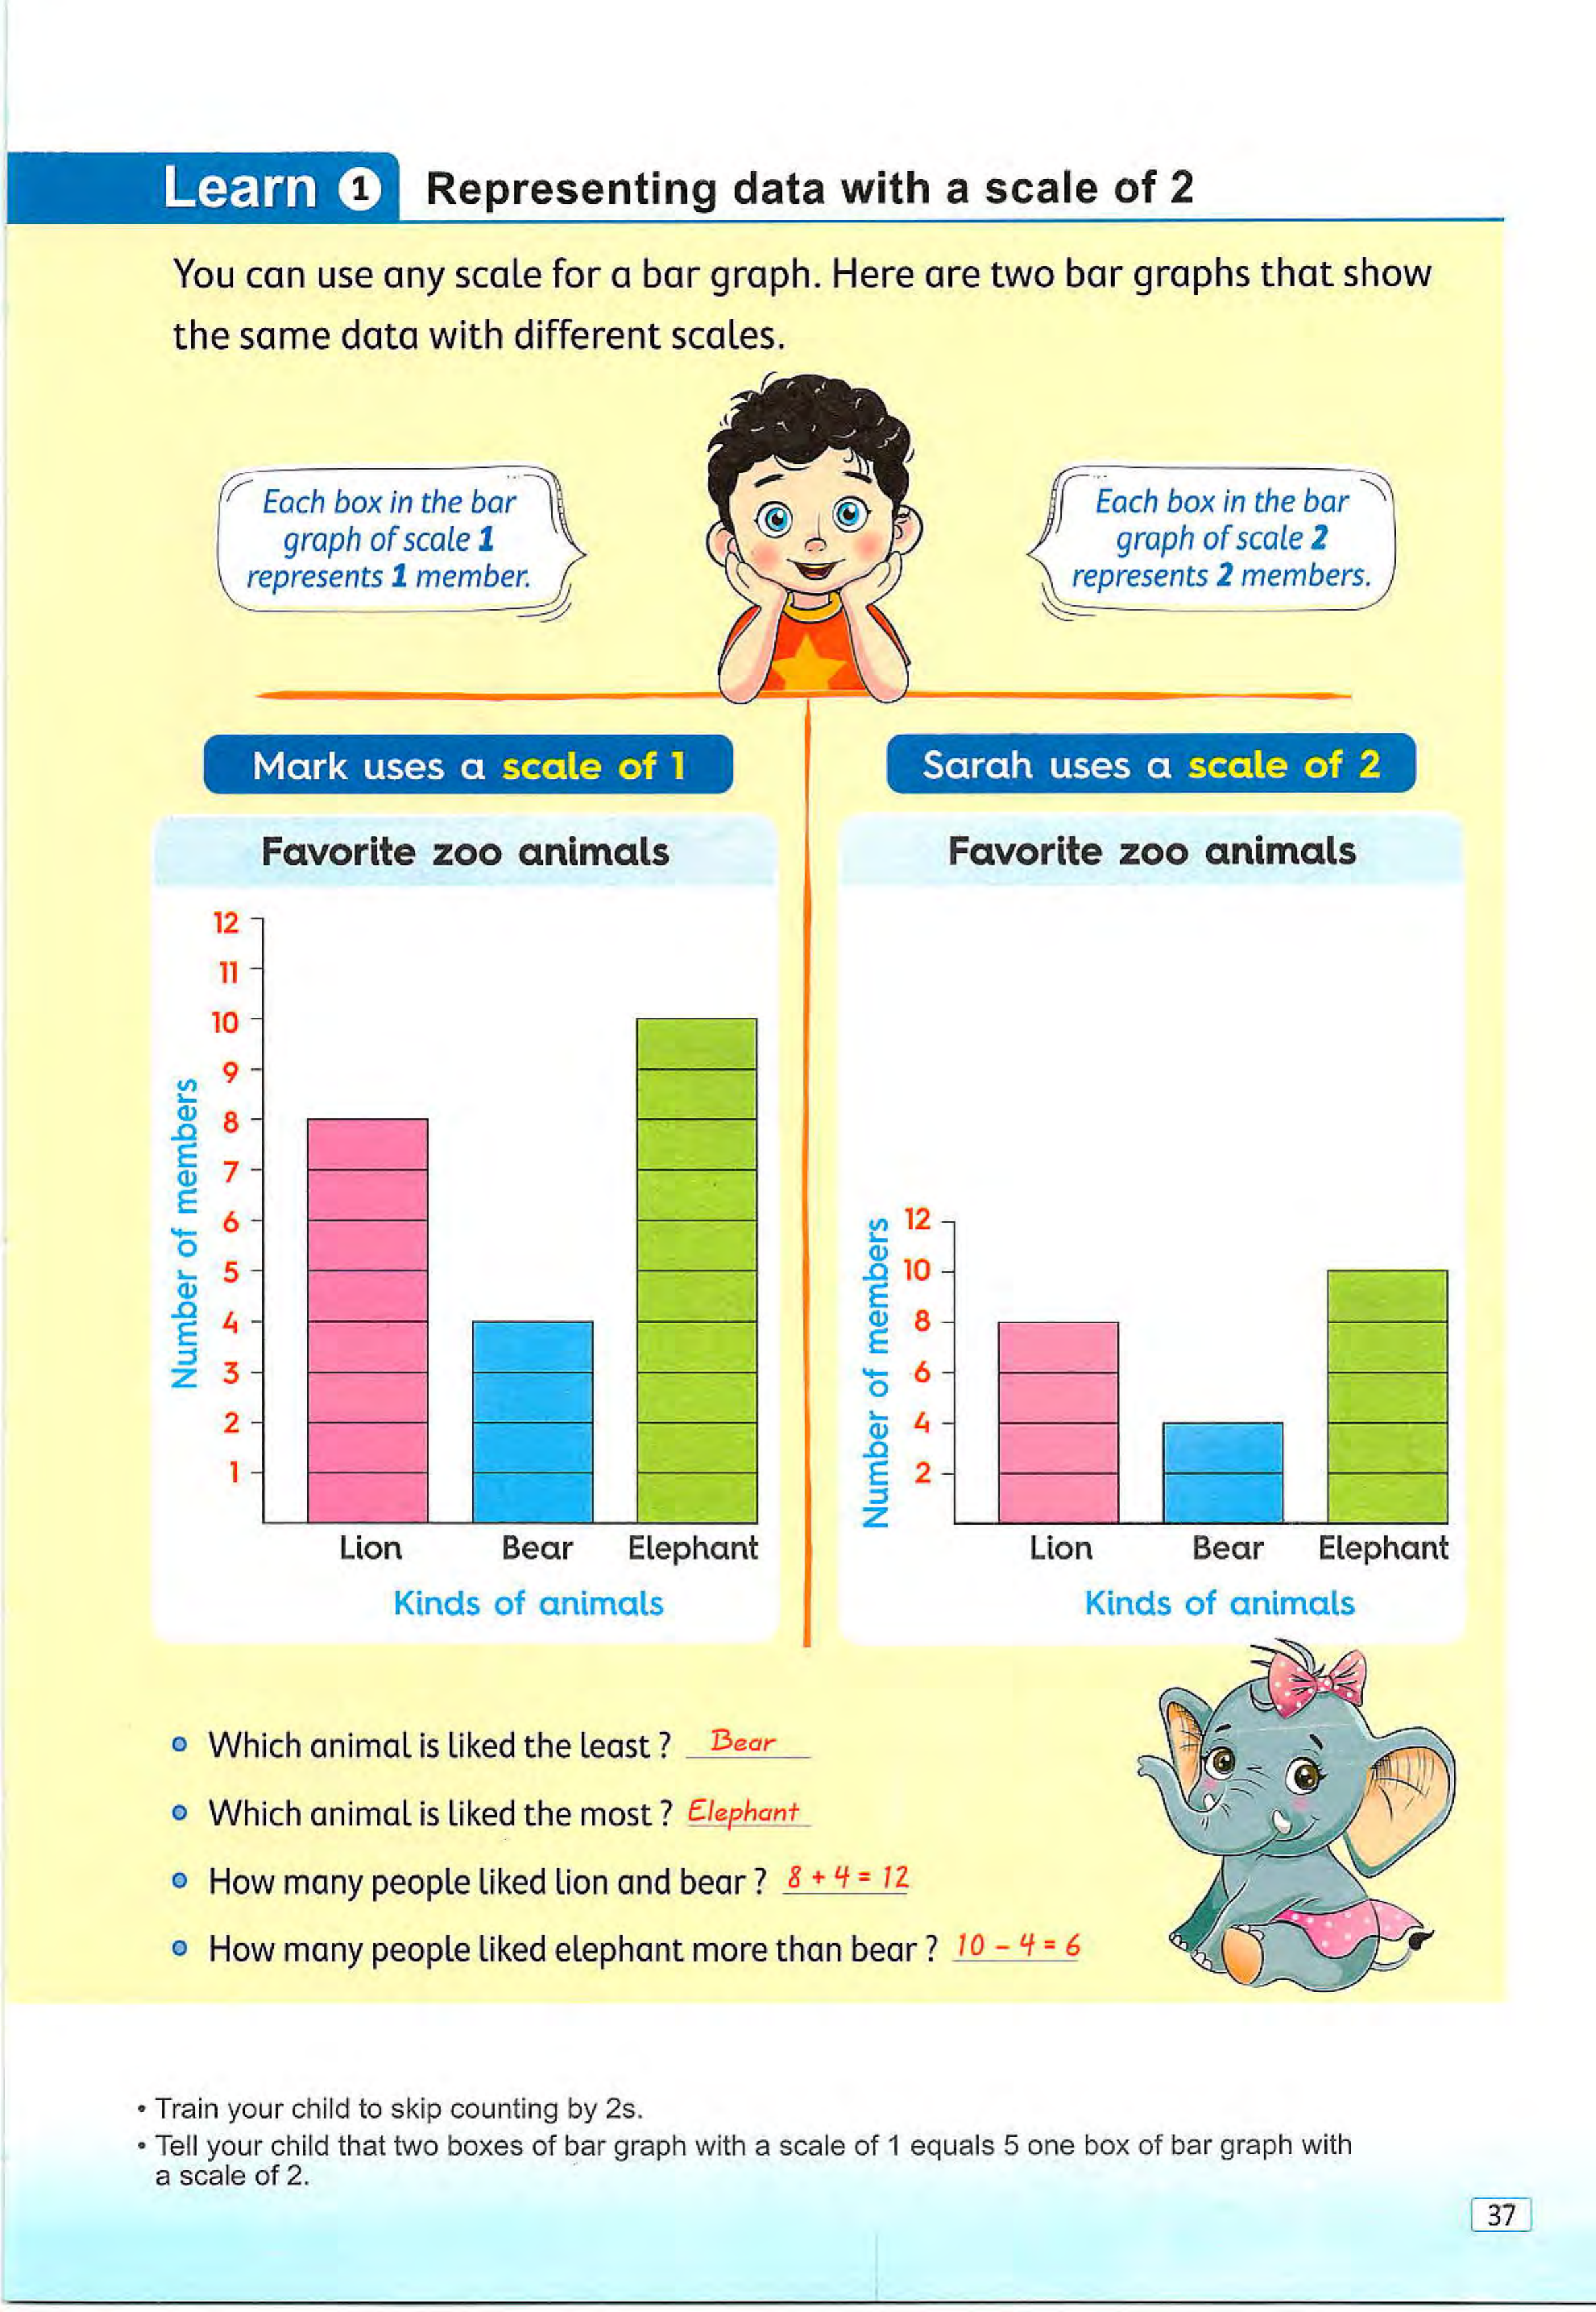 Learn 1 Representing data with a scale of 2
You can use any scale for a bar graph. Here are two bar graphs that show
the same data with different scales.
Each box in the bar
graph of scale 1
represents 1 member.
Each box in the bar
graph of scale 2
represents 2 members.
Mark uses a scale of 1
Favorite zoo animals
Number of members
12
11
10
9
8
7
6
5
4
3
2
1
Lion Bear Elephant
Kinds of animals
Sarah uses a scale of 2
Favorite zoo animals
Number of members
12
10
8
6
4
2
Lion Bear Elephant
Kinds of animals
Which animal is liked the least ? Bear
Which animal is liked the most ? Elephant
How many people liked lion and bear ? 8 + 4 = 12
How many people liked elephant more than bear ? 10 - 4 = 6
• Train your child to skip counting by 2s.
• Tell your child that two boxes of bar graph with a scale of 1 equals 5 one box of bar graph with
a scale of 2.
37